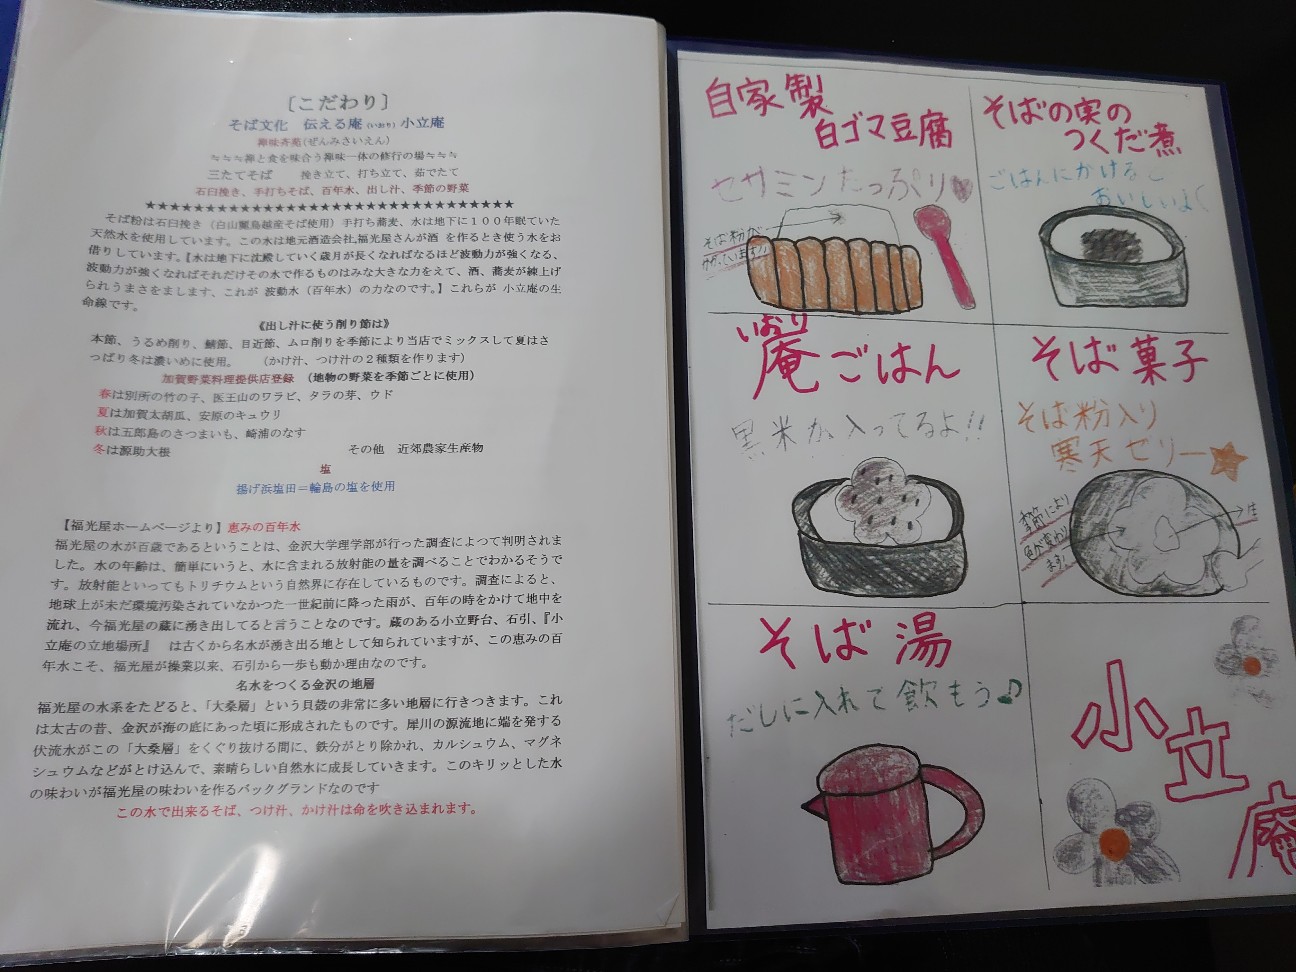 ［こだわり］
そば文化　伝える庵（いおり）小立庵
禅味斉苑（ぜんみさいえん）
≒≒≒禅と食を味合う禅味一体の修行の場≒≒≒
三たてそば　　挽き立て、打ち立て、茹でたて
石臼挽き、手打ちそば、百年水、出し汁、季節の野菜
★★★★★★★★★★★★★★★★★★★★★★★★★★★★★★★★
そば粉は石臼挽き（白山麗鳥越産そば使用）手打ち蕎麦、水は地下に１００年眠ていた
天然水を使用しています。この水は地元酒造会社,福光屋さんが酒 を作るとき使う水をお
借りしています。【水は地下に沈殿していく歳月が長くなればなるほど波動力が強くなる、
波動力が強くなればそれだけその水で作るものはみな大きな力をえて、酒、蕎麦が練上げ
られうまさをまします、これが 波動水（百年水）の力なのです。】これらが 小立庵の生
命線です。
《出し汁に使う削り節は》
本節、うるめ削り、鯖節、目近節、ムロ削りを季節により当店でミックスして夏はさ
っぱり冬は濃いめに使用。　　（かけ汁、つけ汁の２種類を作ります）
加賀野菜料理提供店登録　（地物の野菜を季節ごとに使用）
春は別所の竹の子、医王山のワラビ、タラの芽、ウド
夏は加賀太胡瓜、安原のキュウリ
秋は五郎島のさつまいも、崎浦のなす
冬は源助大根　　　　その他　近郊農家生産物
塩
揚げ浜塩田＝輪島の塩を使用
【福光屋ホームページより】恵みの百年水
福光屋の水が百歳であるということは、金沢大学理学部が行った調査によつて判明されま
した。水の年齢は、簡単にいうと、水に含まれる放射能の量を調べることでわかるそうで
す。放射能といってもトリチウムという自然界に存在しているものです。調査によると、
地球上が未だ環境汚染されていなかつた一世紀前に降った雨が、百年の時をかけて地中を
流れ、今福光屋の蔵に湧き出してると言うことなのです。蔵のある小立野台、石引、『小
立庵の立地場所』　は古くから名水が湧き出る地として知られていますが、この恵みの百
年水こそ、福光屋が操業以来、石引から一歩も動か理由なのです。
名水をつくる金沢の地層
福光屋の水系をたどると、「大桑層」という貝殻の非常に多い地層に行きつきます。これ
は太古の昔、金沢が海の底にあった頃に形成されたものです。犀川の源流地に端を発する
伏流水がこの「大桑層」をくぐり抜ける間に、鉄分がとり除かれ、カルシュウム、マグネ
シュウムなどがとけ込んで、素晴らしい自然水に成長していきます。このキリッとした水
の味わいが福光屋の味わいを作るバックグランドなのです
この水で出来るそば、つけ汁、かけ汁は命を吹き込まれます。
自家製
白ゴマ豆腐
セサミンたっぷり♥
そば粉が
そばの実の
つくだ煮
ごはんにかけると
おいしいよ
いおり
庵ごはん
黒米が入ってるよ!!
そば菓子
そば粉入り
寒天ゼリー★
季節により
色が変わり
ます！
そば湯
だしに入れて飲もう♪
小立庵